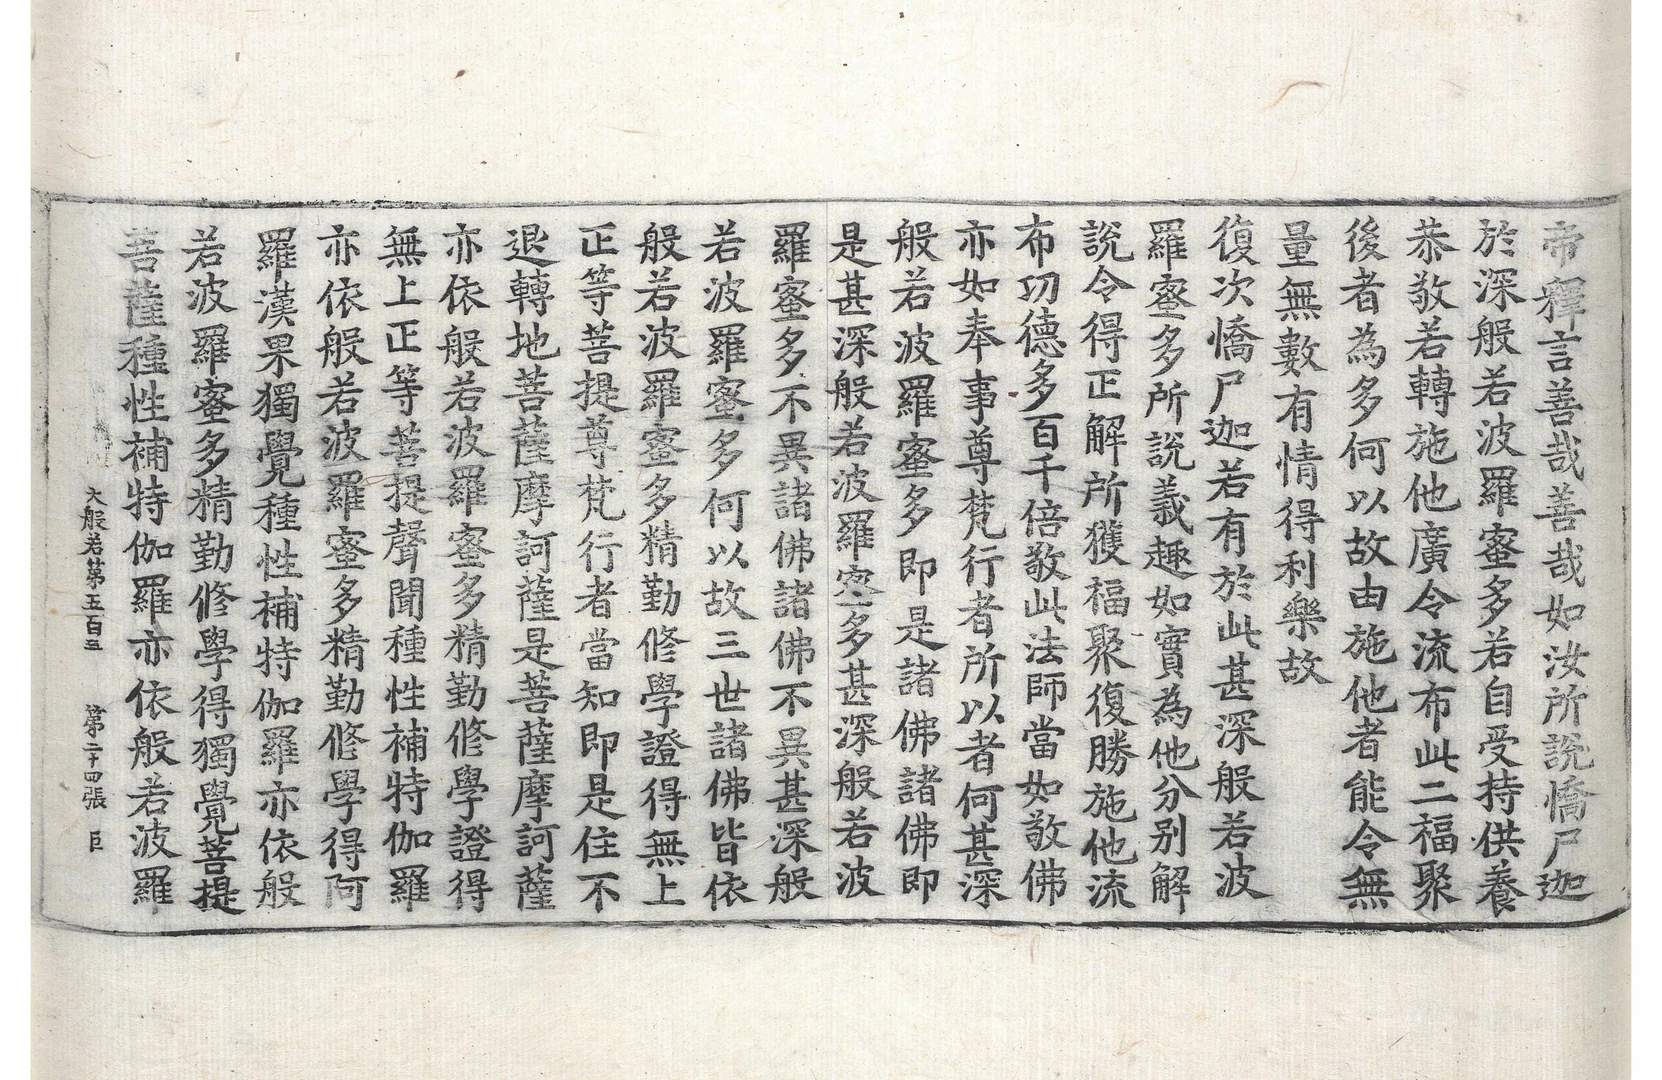 帝釋言善哉善哉如汝所說憍尸迦
於深般若波羅蜜多若自受持供養
恭敬若轉施他廣令流布此二福聚
後者為多何以故由施他者能令無
量無數有情得利樂故
復次憍尸迦若有於此甚深般若波
羅蜜多所說義趣如實為他分別解
說令得正解所獲福聚復勝施他流
布功德多百千倍敬此法師當如敬佛
亦如奉事尊梵行者所以者何甚深
般若波羅蜜多即是諸佛諸佛即
是甚深般若波羅蜜多甚深般若波
羅蜜多不異諸佛諸佛不異甚深般
若波羅蜜多何以故三世諸佛皆依
般若波羅蜜多精勤修學證得無上
正等菩提尊梵行者當知即是住不
退轉地菩薩摩訶薩是菩薩摩訶薩
亦依般若波羅蜜多精勤修學證得
無上正等菩提聲聞種性補特伽羅
亦依般若波羅蜜多精勤修學得阿
羅漢果獨覺種性補特伽羅亦依般
若波羅蜜多精勤修學得獨覺菩提
菩薩種性補特伽羅亦依般若波羅
大般若第五百五 第二十四張 巨